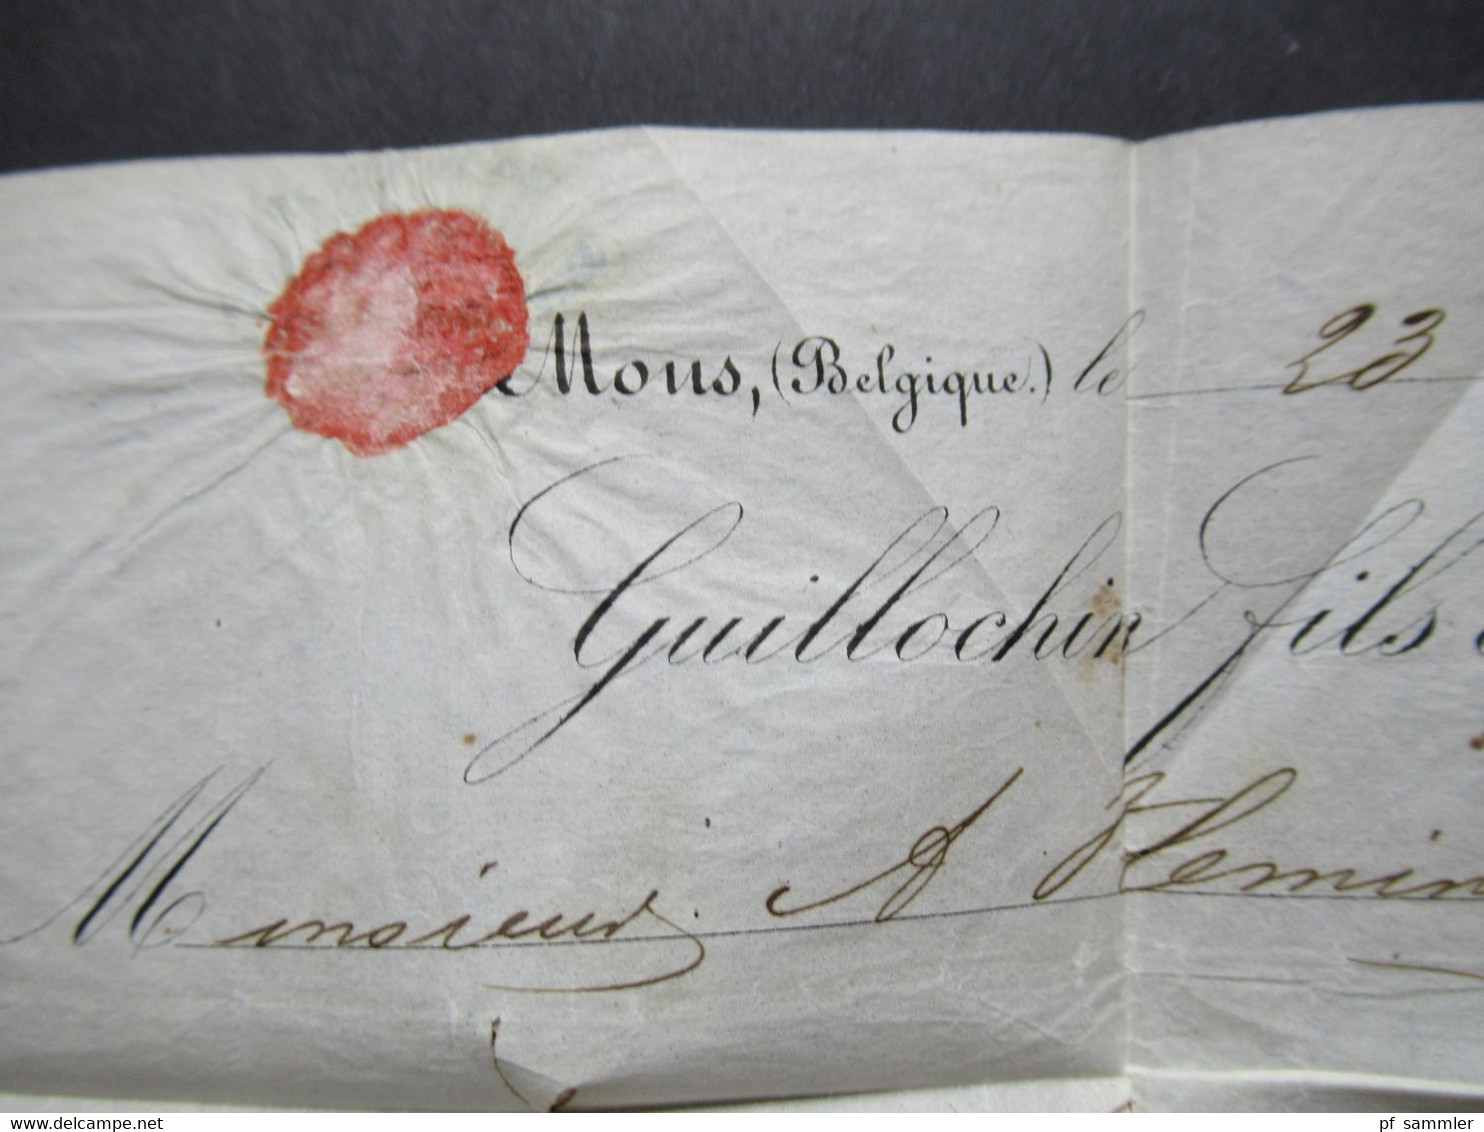 Mons, (Belgique.) le 23
Guillochin fils
Monsieur A Flemin
delcampe.net
pf_sammler